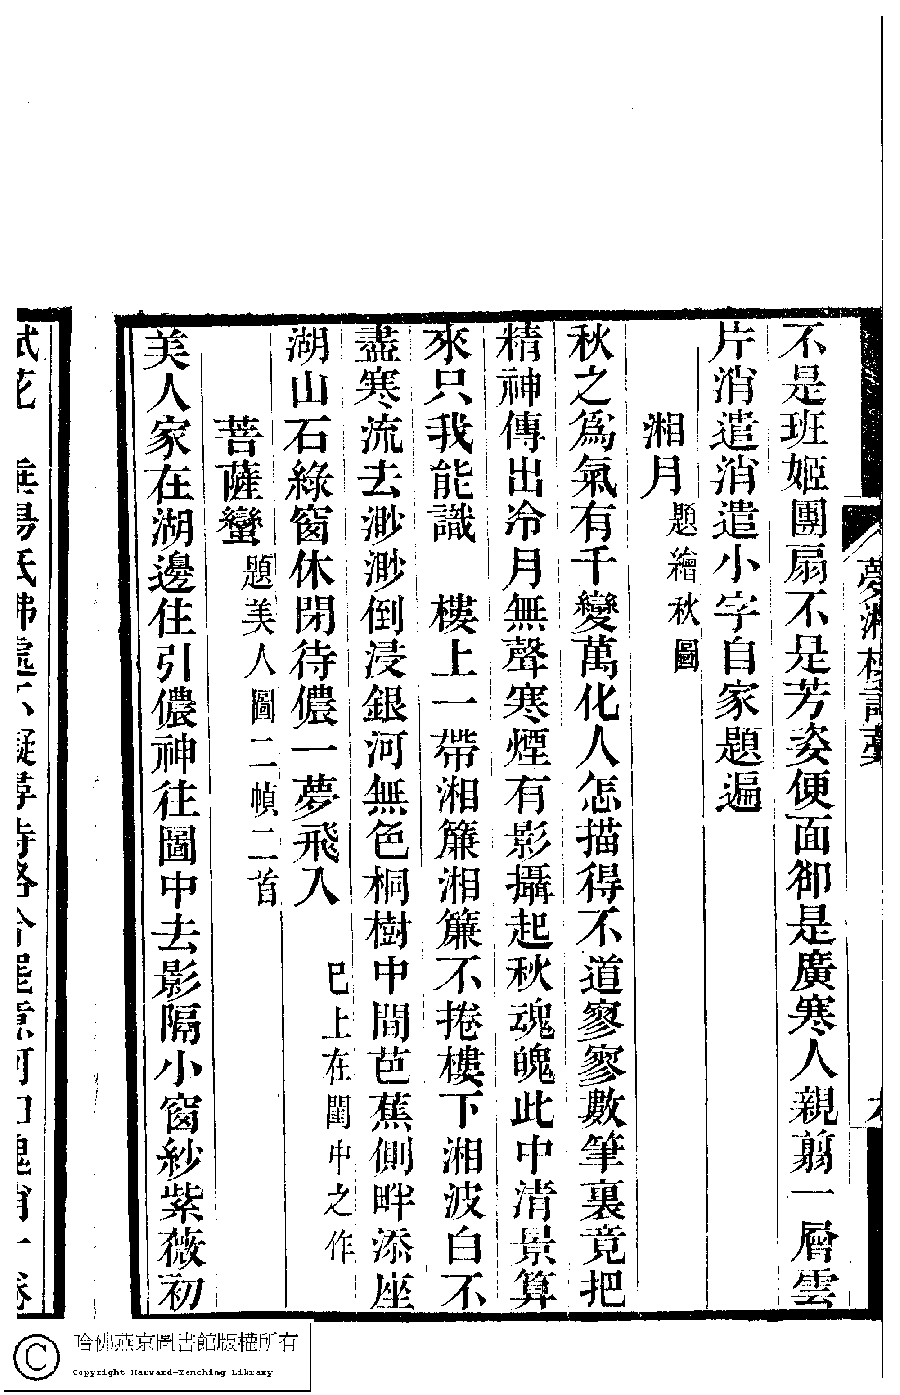 不是班姬團扇不是芳姿便面卻是廣寒人親翦一層雲
片消遣消遣小字自家題遍
湘月題繪秋圖
秋之爲氣有千變萬化人怎描得不道寥寥數筆裏竟把
精神傳出冷月無聲寒煙有影攝起秋魂魄此中清景算
來只我能識　樓上一帶湘簾湘簾不捲樓下湘波白不
盡寒流去渺渺倒浸銀河無色桐樹中間芭蕉側畔添座
湖山石綠窗休閉待儂一夢飛入　已上在閨中之作
菩薩蠻題美人圖二幀二首
美人家在湖邊住引儂神往圖中去影隔小窗紗紫薇初
哈佛燕京圖書館版權所有
Copyright Harvard-Yenching Library